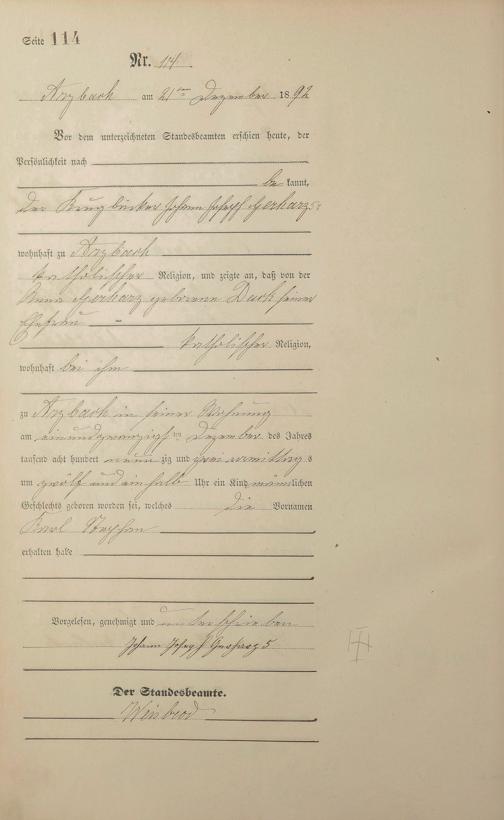 Seite 114
Nr. 114.
Arzbach am 21ten Dezember 1892
Vor dem unterzeichneten Standesbeamten erschien heute, der
Persönlichkeit nach
be kannt,
der Krugbäcker Johann Joseph Gerharz 5r
wohnhaft zu Arzbach
katholischer Religion, und zeigte an, daß von der
Anna Gerharz geborene Dach seiner
Ehefrau
katholischer Religion,
wohnhaft bei ihm
zu Arzbach in seiner Wohnung
am einundzwanzigsten Dezember des Jahres
tausend acht hundert neun zig und zwei vormittags
um zwölf und ein halb Uhr ein Kind männlichen
Geschlechts geboren worden sei, welches die Vornamen
Karl Stephan
erhalten habe
Vorgelesen, genehmigt und unterschrieben
Johann Joseph Gerharz 5
Der Standesbeamte.